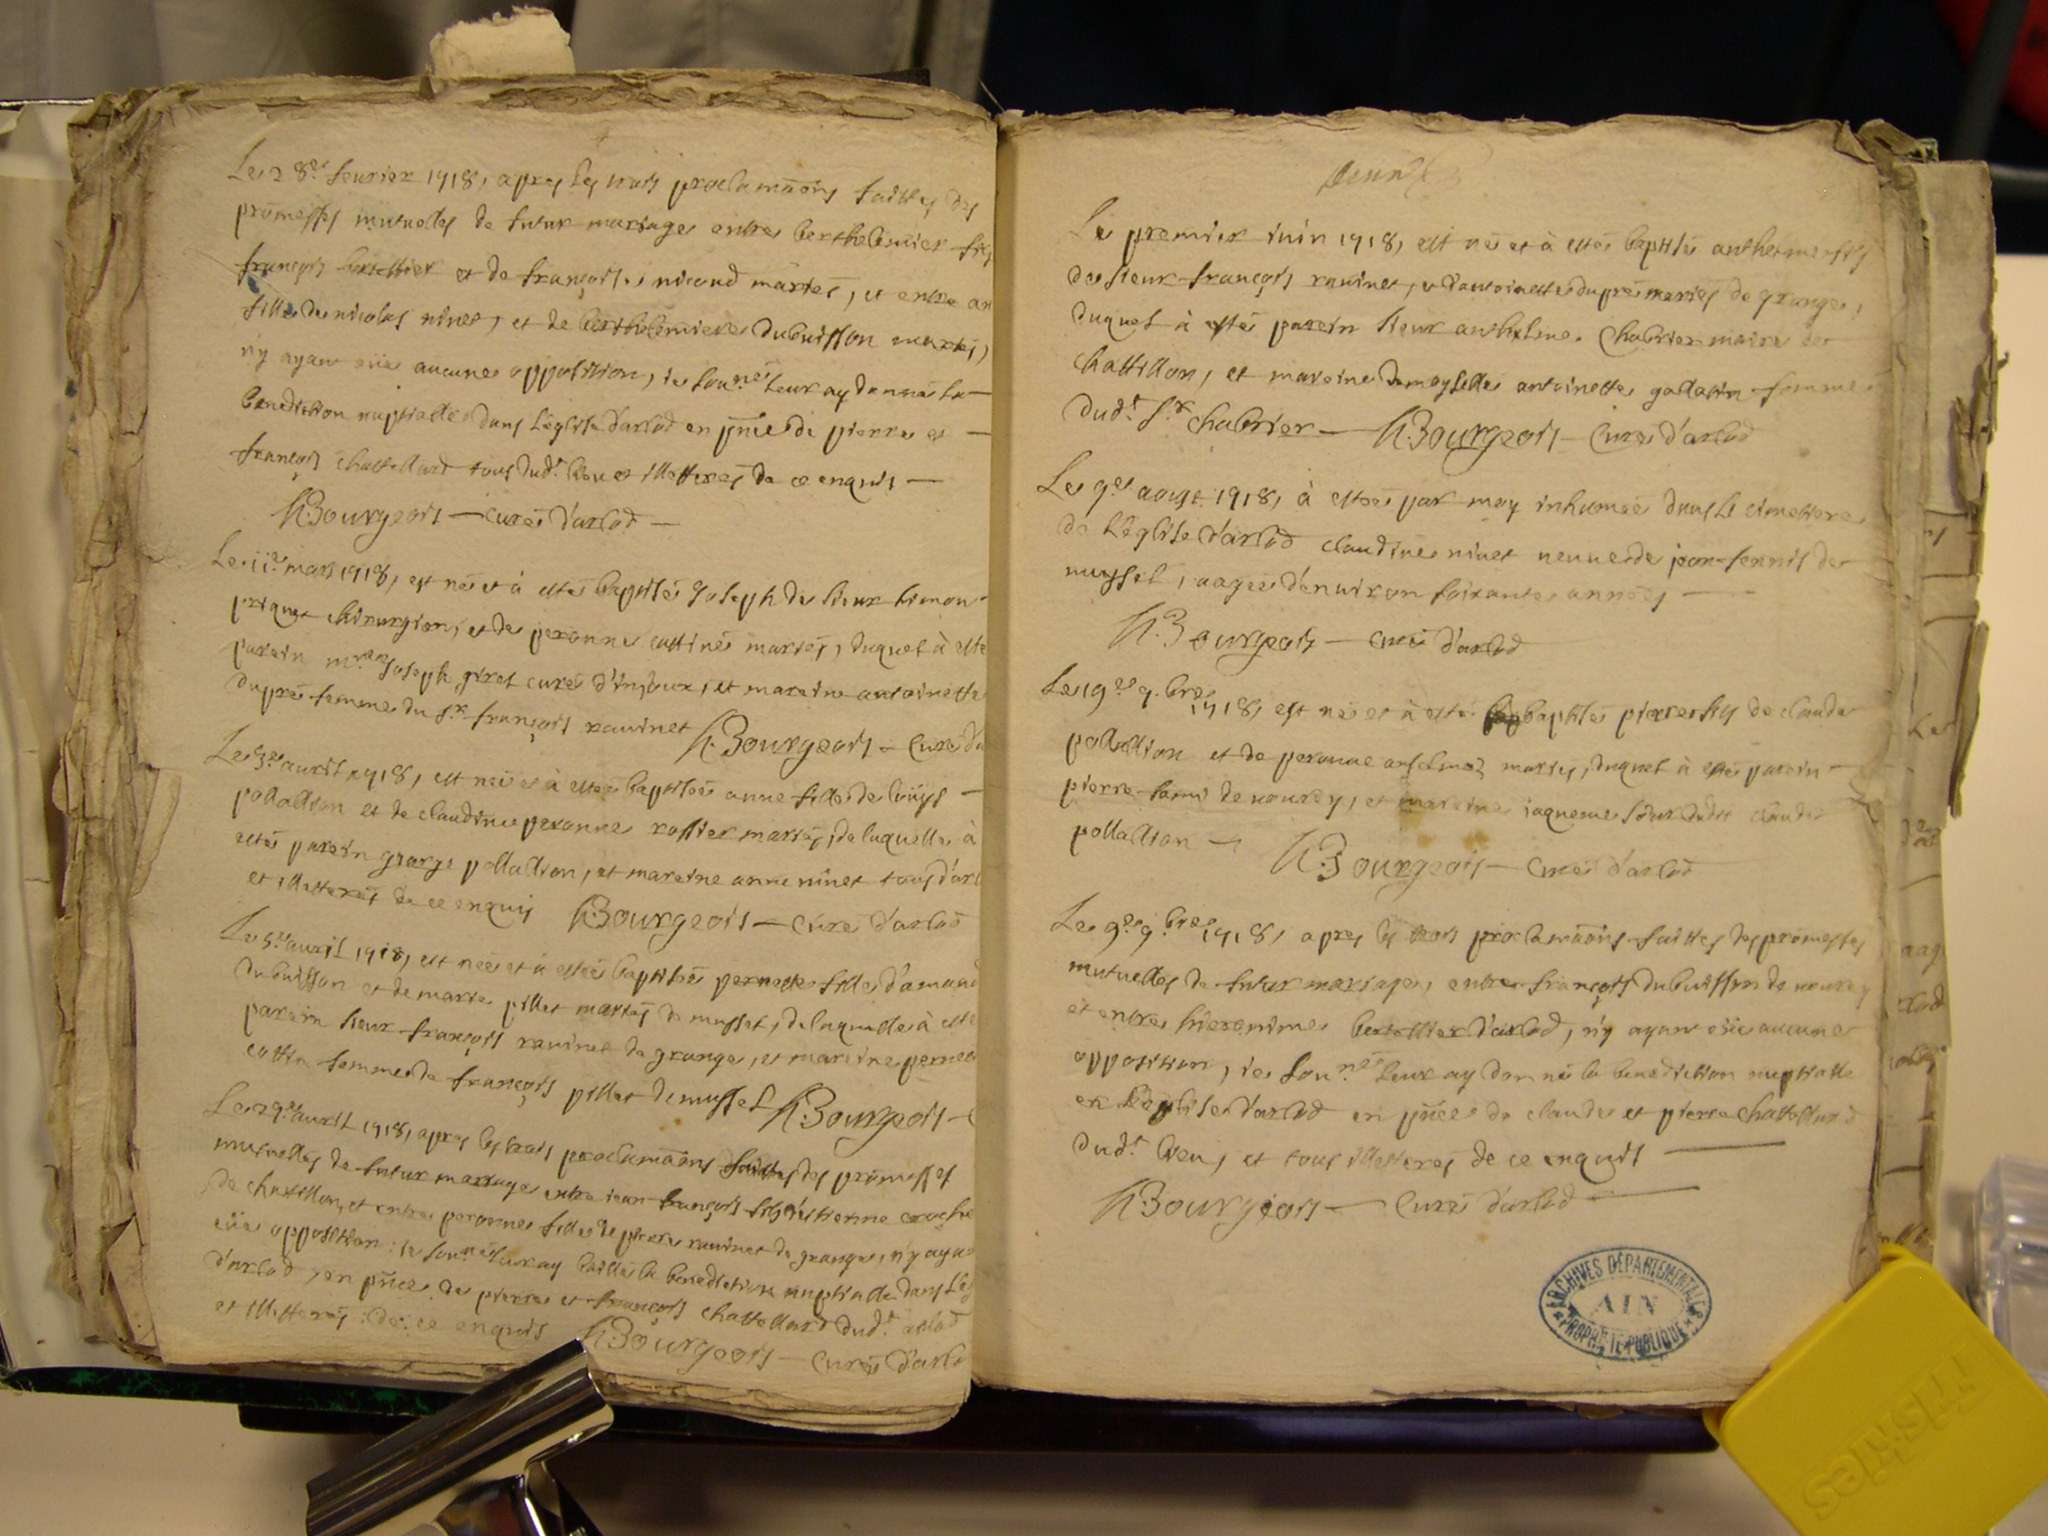 Le 28.e feurier 1718, apres les trois proclamãons faittes des
promesses mutuelles de futur mariage entre berthelemier fils
françois bertettier et de françoise nicoud mariés, et entre an
fille de nicolas ninet, et de berthelemiere dubuisson mariés,
n'y ayant eüe aucune opposition, ie sou.nés leur ay donné la
benediction nuptialle dans L'eglise d'arlod en pñce de pierre et
françois chastellard tous dud.t lieu et illetterés de ce enquis
Bourgeois curé d'arlod
Le 11.e mars 1718, est né et à esté baptisé Joseph de sieur simon
priquet chirurgien, et de peronne cottiné mariés, duquel à esté
parein m.re Joseph giret curé d'injoux, et mareine antoinette
dupré femme du s.r françois rauinet Bourgeois curé d'a
Le 3.e auril 1718, est neé et à estée baptisée anne fille de loüys
pollallion et de claudine peronne rossier mariés, de laquelle à
esté parein george pollallion, et mareine anne ninet tous d'arl
et illetterés de ce enquis Bourgeois curé d'arlod
Le 5.e auril 1718, est neé et à estée baptisée pernette fille d'amand
dubuisson et de marie pillet mariés de mussel, de laquelle à esté
parein sieur françois rauinet de grange, et mareine pernett
cottin femme de françois pillet de mussel Bourgeois
Le 29.e auril 1718, apres les trois proclamãons faittes des promesses
mutuelles de futur mariage entre iean françois fils d'estienne
de chatillon, et entre peronne fille de pierre rauinet de grange, n'y aya
eüe opposition : ie sou.nés leur ay baillé la benediction nuptialle dans L'eg
d'arlod, en pñce de pierre et françois chastellard dud.t arlod
et illetterés de ce enquis Bourgeois curé d'arlo
Le premier iuin 1718, est né et à esté baptisé anthelme fils
de sieur françois rauinet, et d'antoinette dupré mariés de grange,
duquel à esté parein sieur anthelme chabrier maire de
chattillon, et mareine damoyselle antoinette gallatin femme
dud.t s.r chabrier Bourgeois curé d'arlod
Le 9.e aoust 1718, à esteé par moy inhumeé dans le cimettiere
de L'eglise d'arlod claudine ninet veuue de jean fennit de
mussel, aagée d'enuiron soixante anneés
Bourgeois curé d'arlod
Le 19.e 7.bre 1718, est né et à esté baptisé pierre fils de claude
pollallion et de peronne anselmoz mariés, duquel à esté parein
pierre fami de nourey, et mareine iaqueme soeur dudit claude
pollallion Bourgeois curé d'arlod
Le 9.e 9.bre 1718, apres les trois proclamãons faittes des promesses
mutuelles de futur mariage, entre françois dubuisson de nourey
et entre hieronime bertettier d'arlod, n'y ayant eüe aucune
opposition, ie sou.nés leur ay donné la benediction nuptialle
en L'eglise d'arlod en pñce de claude et pierre chastellard
dud.t lieu, et tous illetterés de ce enquis
Bourgeois curé d'arlod
ARCHIVES DÉPARTEMENTALES
AIN
PROPRIÉTÉ PUBLIQUE
Triskles